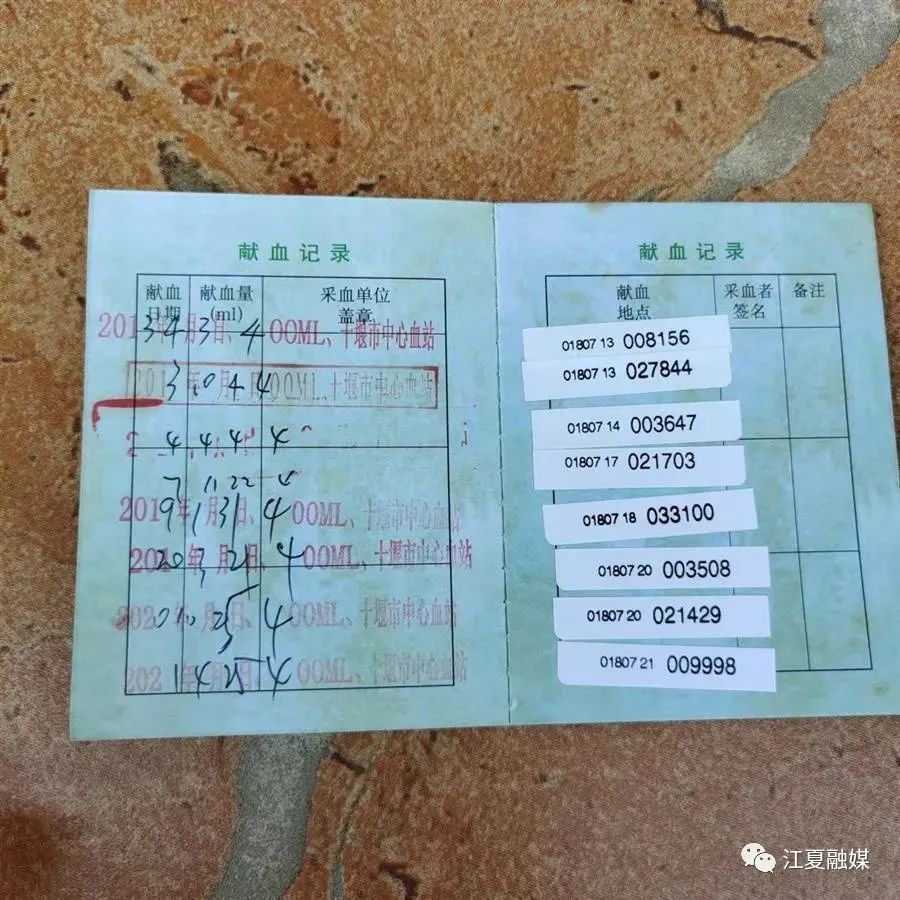 献血记录
献血日期 献血量(ml) 采血单位盖章
2013年4月3日、400ML、十堰市中心血站
2013年10月4日400ML、十堰市中心血站
4 4 4 4
7 11 22 4
2019年1月31日、400ML、十堰市中心血站
2020年3月21日、400ML、十堰市中心血站
2020年10月25日、400ML、十堰市中心血站
2021年4月25日、400ML、十堰市中心血站
献血记录
献血地点 采血者签名 备注
01807 13 008156
01807 13 027844
01807 14 003647
01807 17 021703
01807 18 033100
01807 20 003508
01807 20 021429
01807 21 009998
江夏融媒